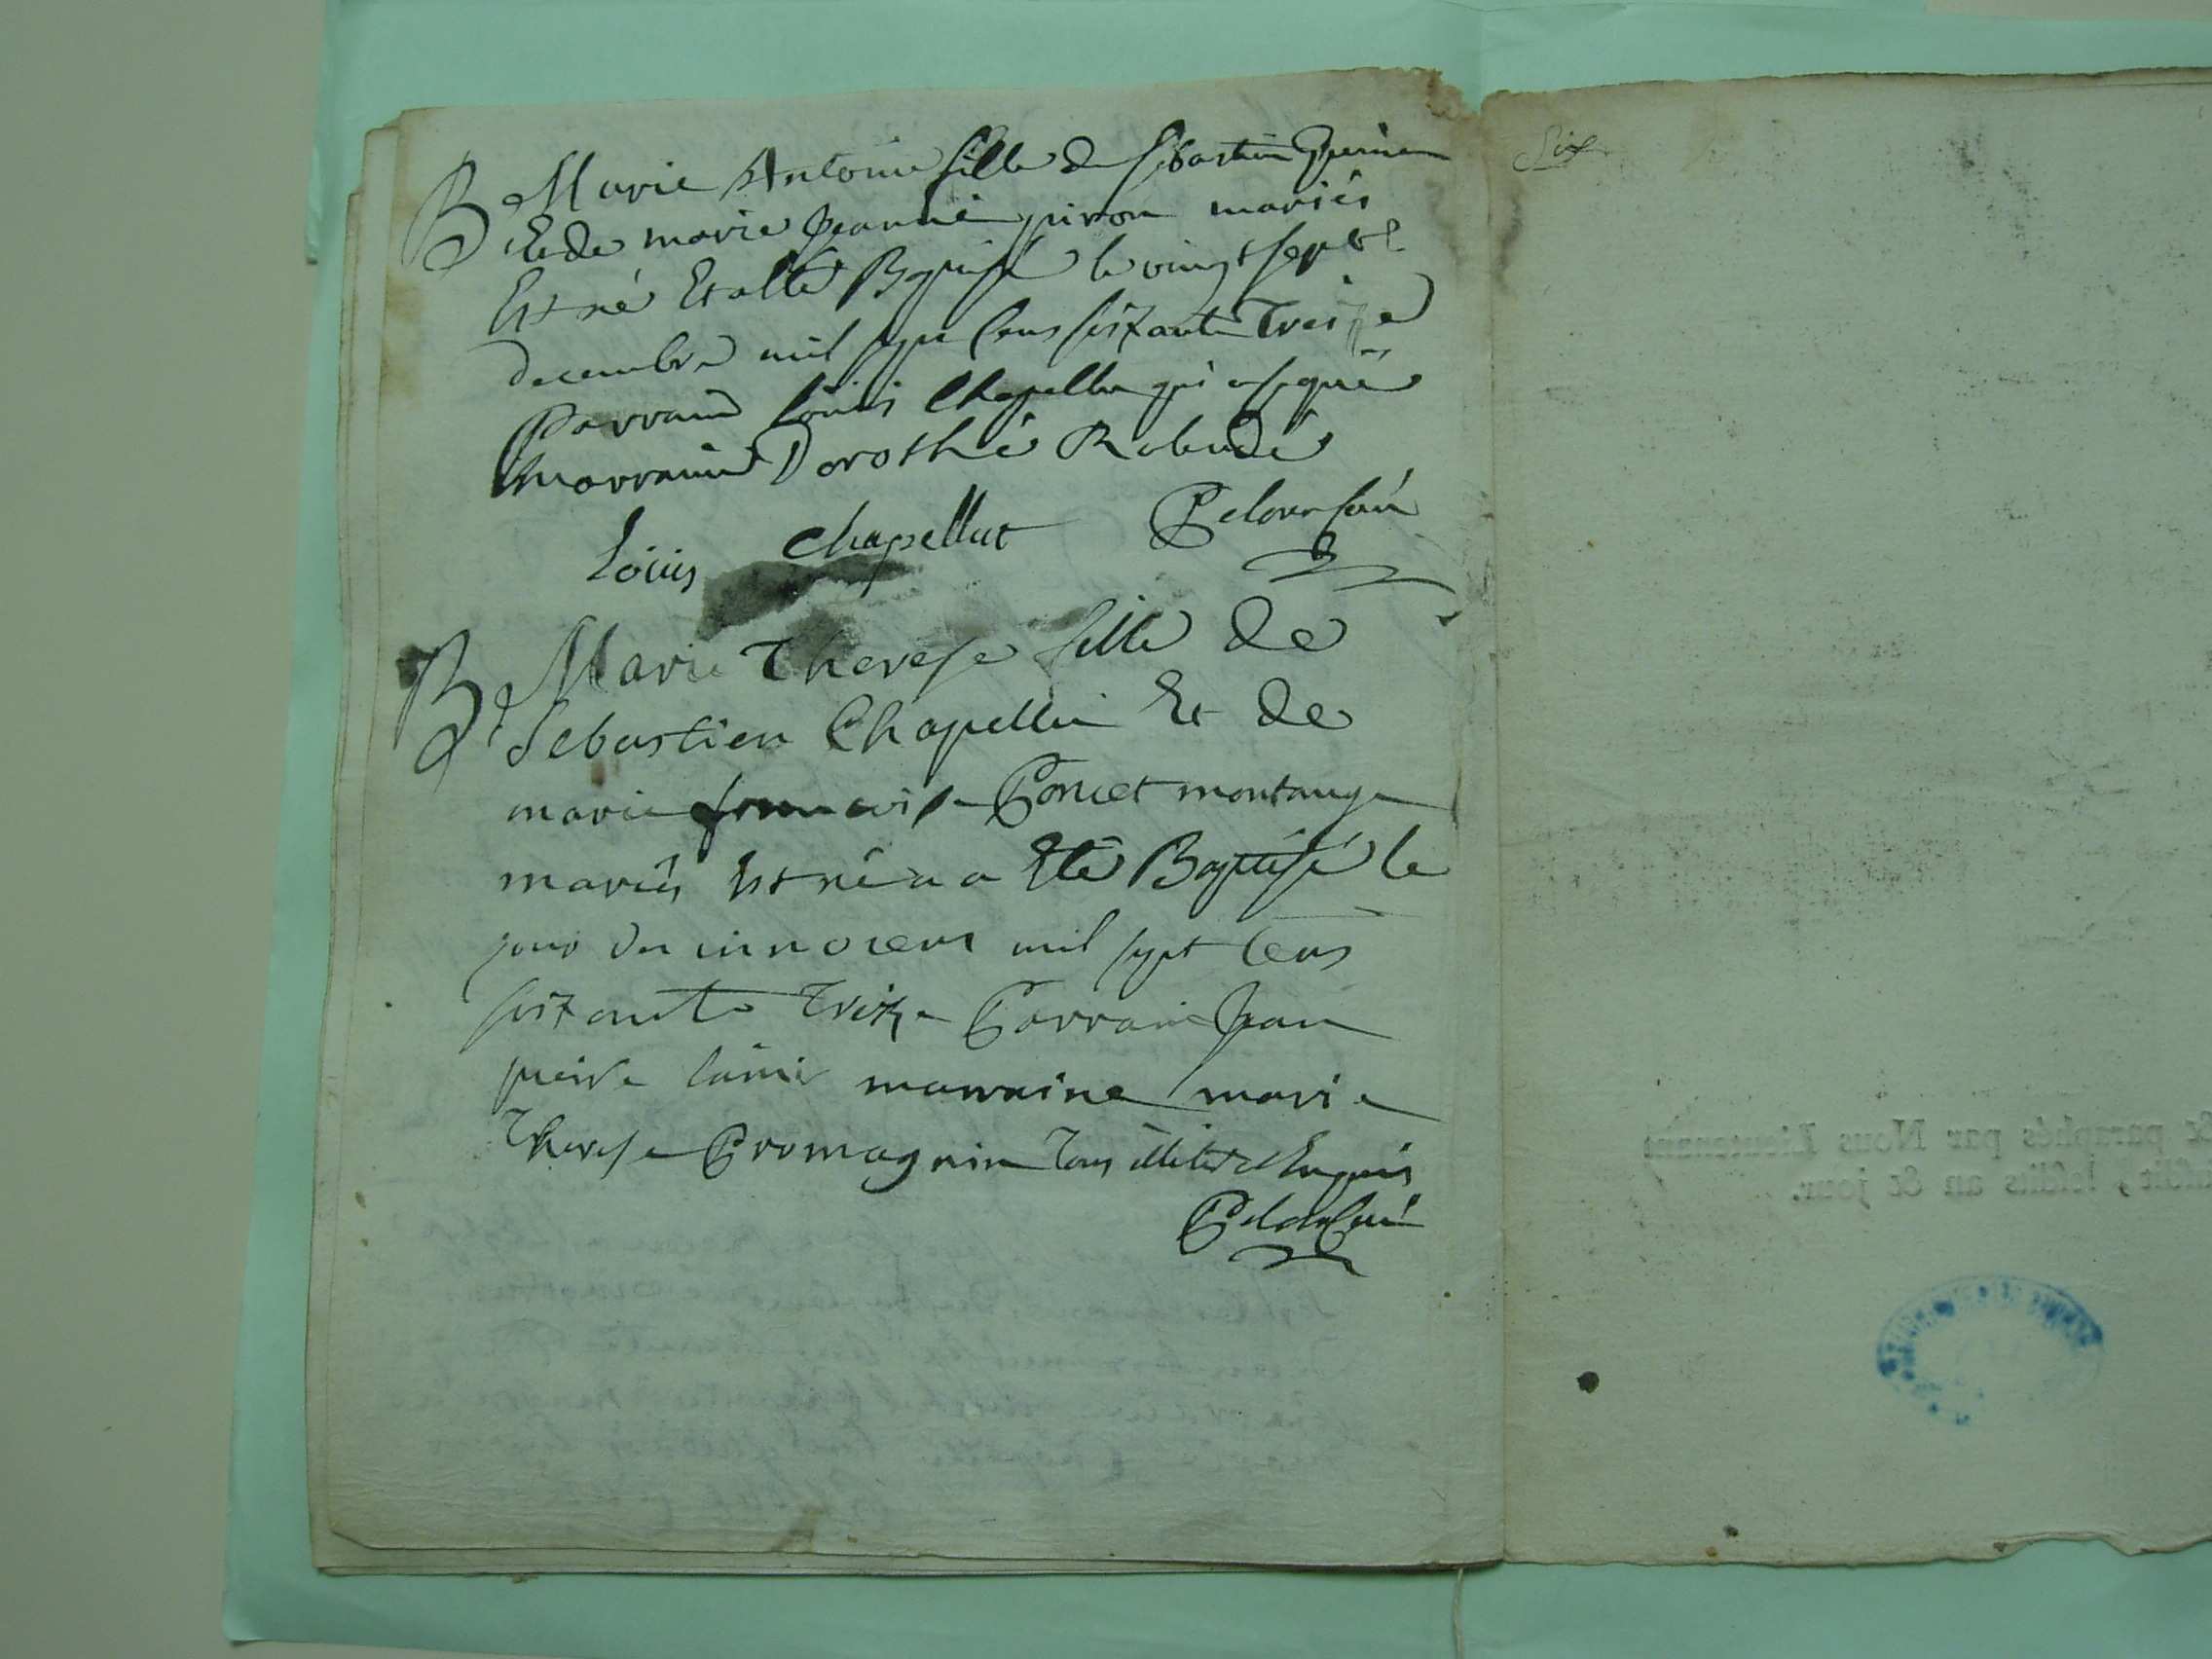 B Marie Antoine fille de sebastien
et de marie Jeanne piron mariés
Est né et atté Baptisé le vingt sept
decembre mil sept cens soixante Treize
Parrain Louis Chapellu qui a signé
marraine Dorothé
Louis Chapellut
B Marie Therese fille de
Sebastien Chapellu Et de
marie francoise Poncet montange
mariés Est né a Eté Baptisé le
jour des innocens mil sept Cens
soixante Treize Parrain Jean
marraine marie
Therese Promagnin Tous illiteré Enquis
Six
& paraphés par Nous Lieutenant
lesdits an & jour.